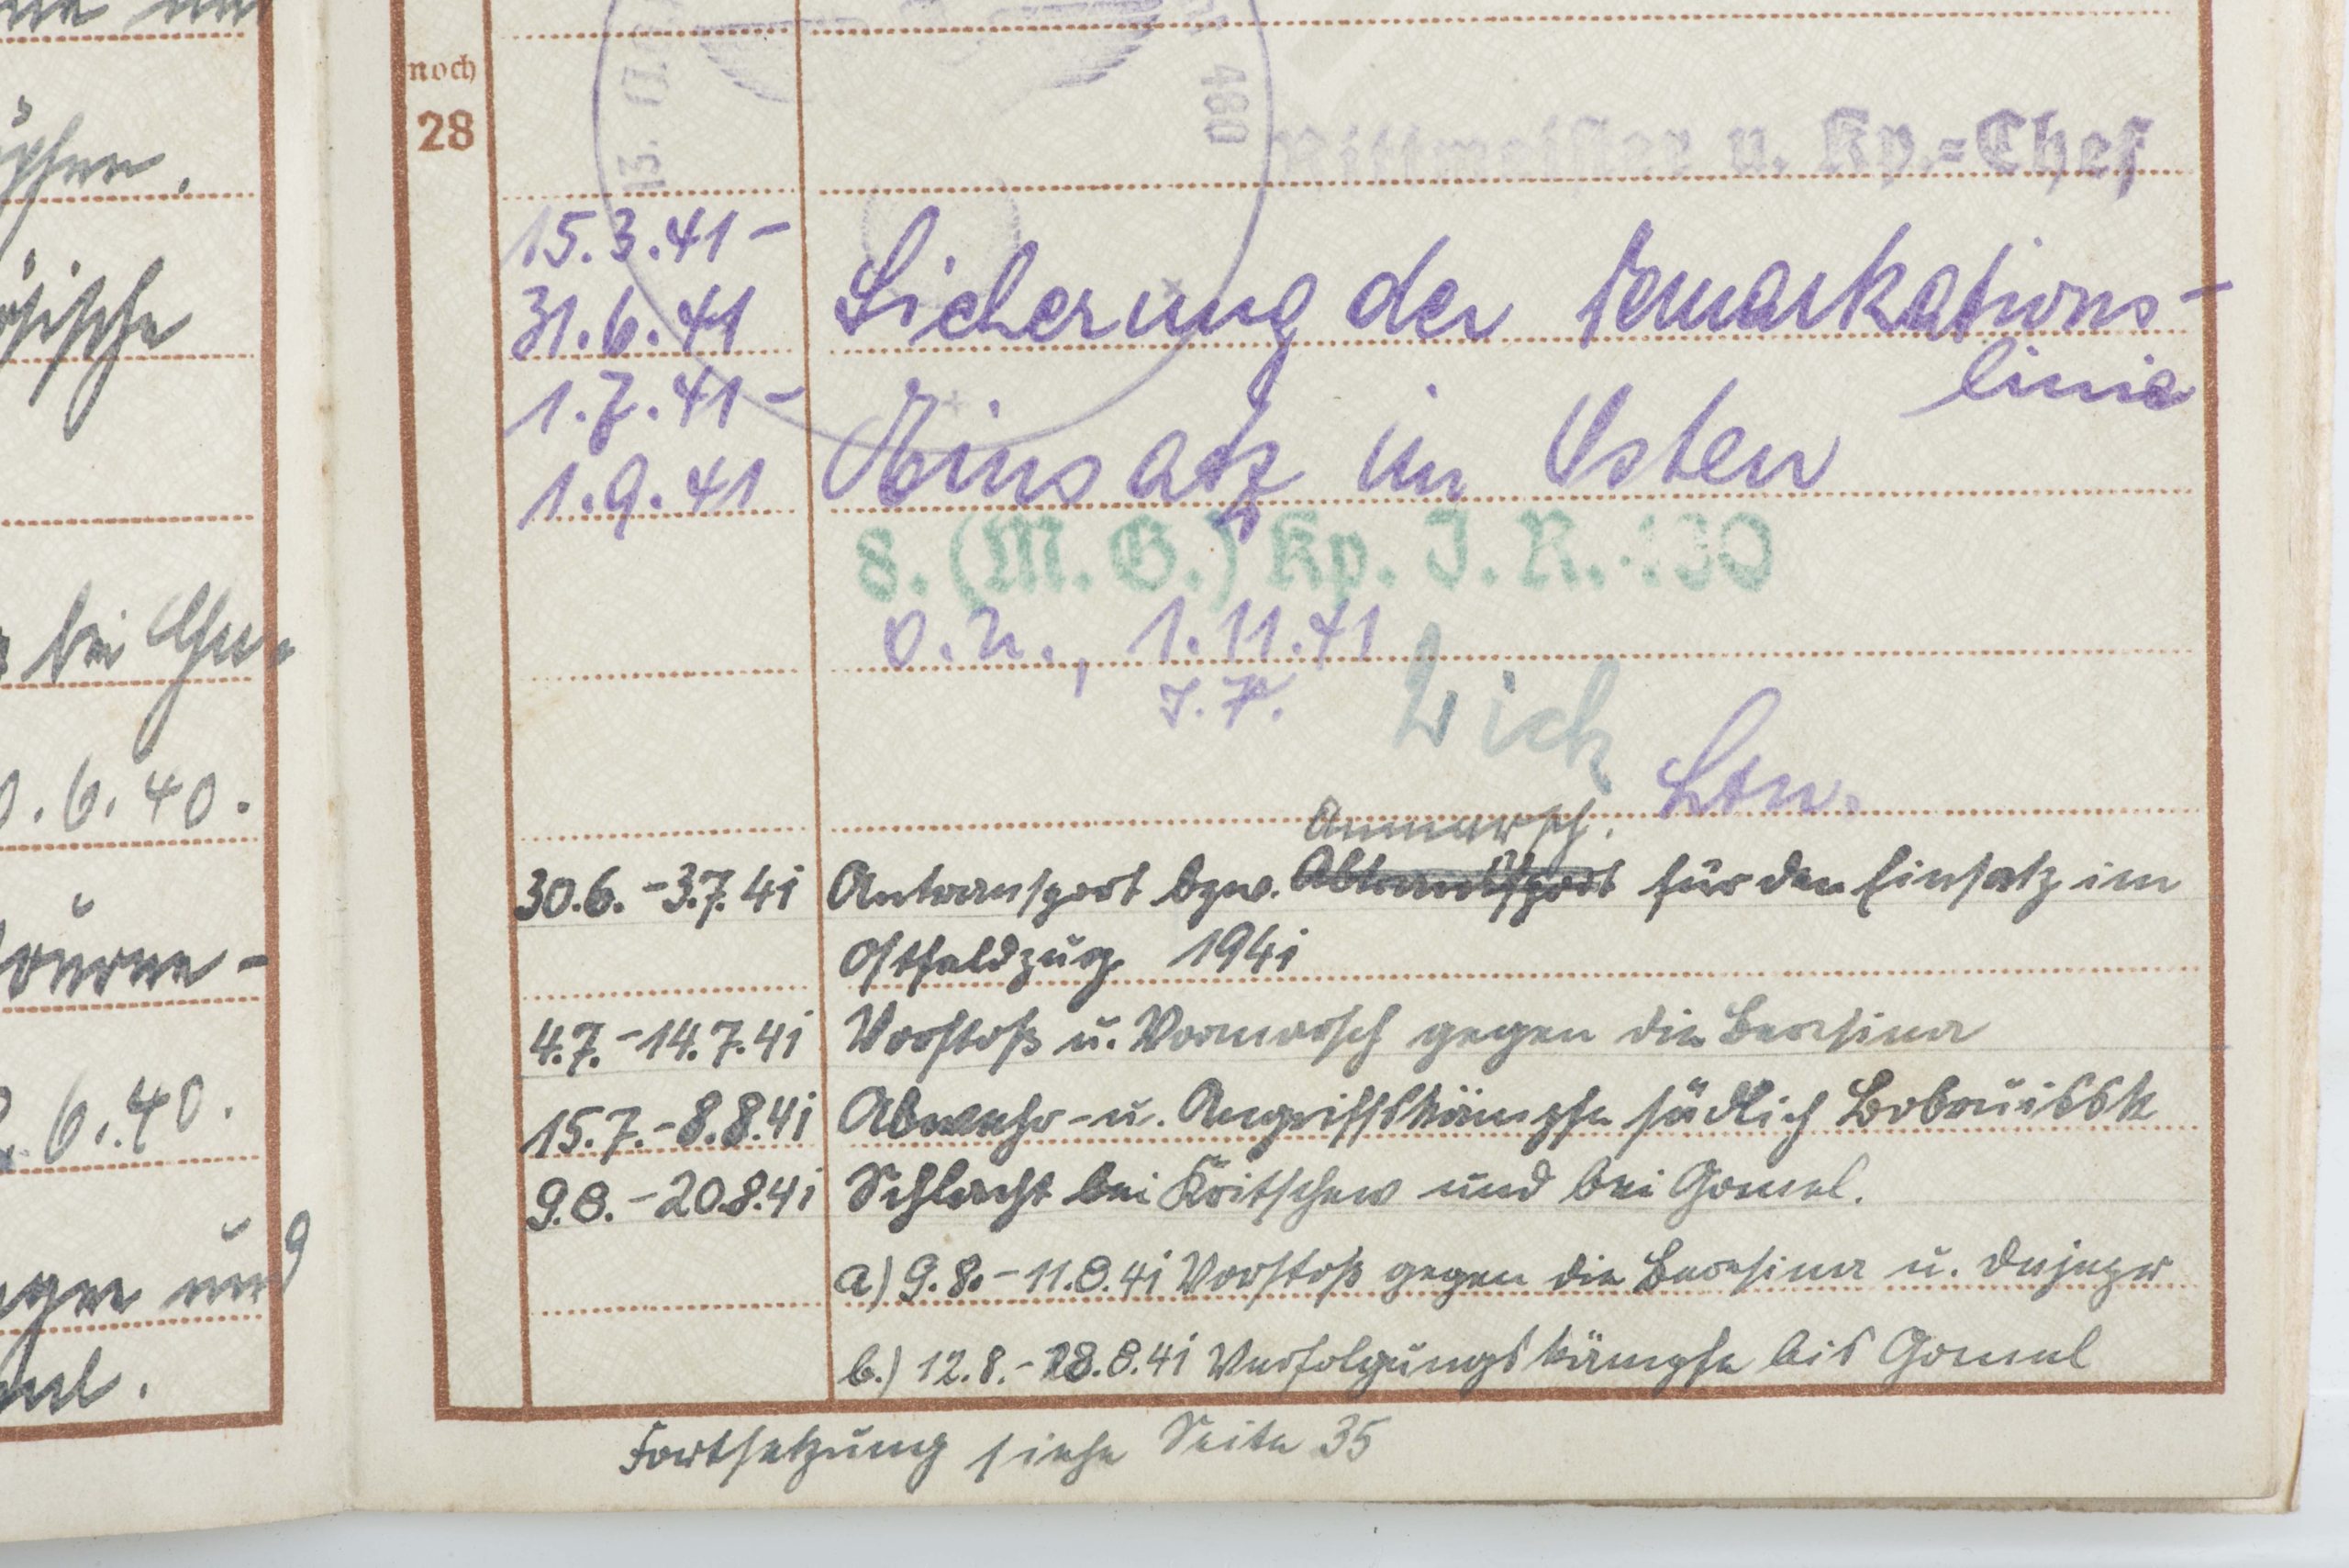 noch
28
480
13.
Rittmeister u. Kp.=Chef
15.3.41 –
31.6.41 Sicherung der Demarkations-
linie
1.7.41 –
1.9.41 Einsatz im Osten
8. (M. G.) Kp. I. R. 130
O.U., 1.11.41
I.V.
Ltn.
Anmarsch.
30.6. - 3.7.41 Antransport bzw. Abtransport für den Einsatz im
Ostfeldzug 1941
4.7. - 14.7.41 Vorstoß u. Vormarsch gegen die Beresina
15.7. - 8.8.41 Abwehr- u. Angriffskämpfe südlich Bobruissk
9.8. - 20.8.41 Schlacht bei Kritschew und bei Gomel.
a) 9.8. - 11.8.41 Vorstoß gegen die Beresina u. Dnjepr
b.) 12.8. - 18.8.41 Verfolgungskämpfe bis Gomel
Fortsetzung siehe Seite 35
bei
0.6.40.
6.40.
und